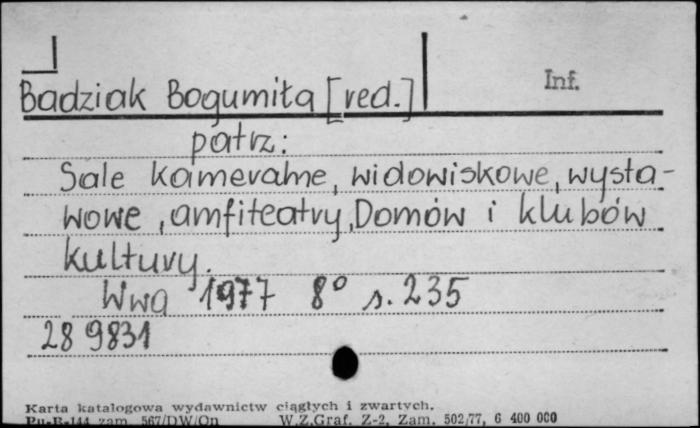 Badziak Bogumiła [red.] Inf.
patrz:
Sale kameralne, widowiskowe, wysta-
wowe, amfiteatry, Domów i klubów
kultury.
Wwa 1977 8° s. 235
28 9831
Karta katalogowa wydawnictw ciągłych i zwartych.
Pu-B-144 zam. 567/DW/On W.Z.Graf. Z-2, Zam. 502/77, 6 400 000